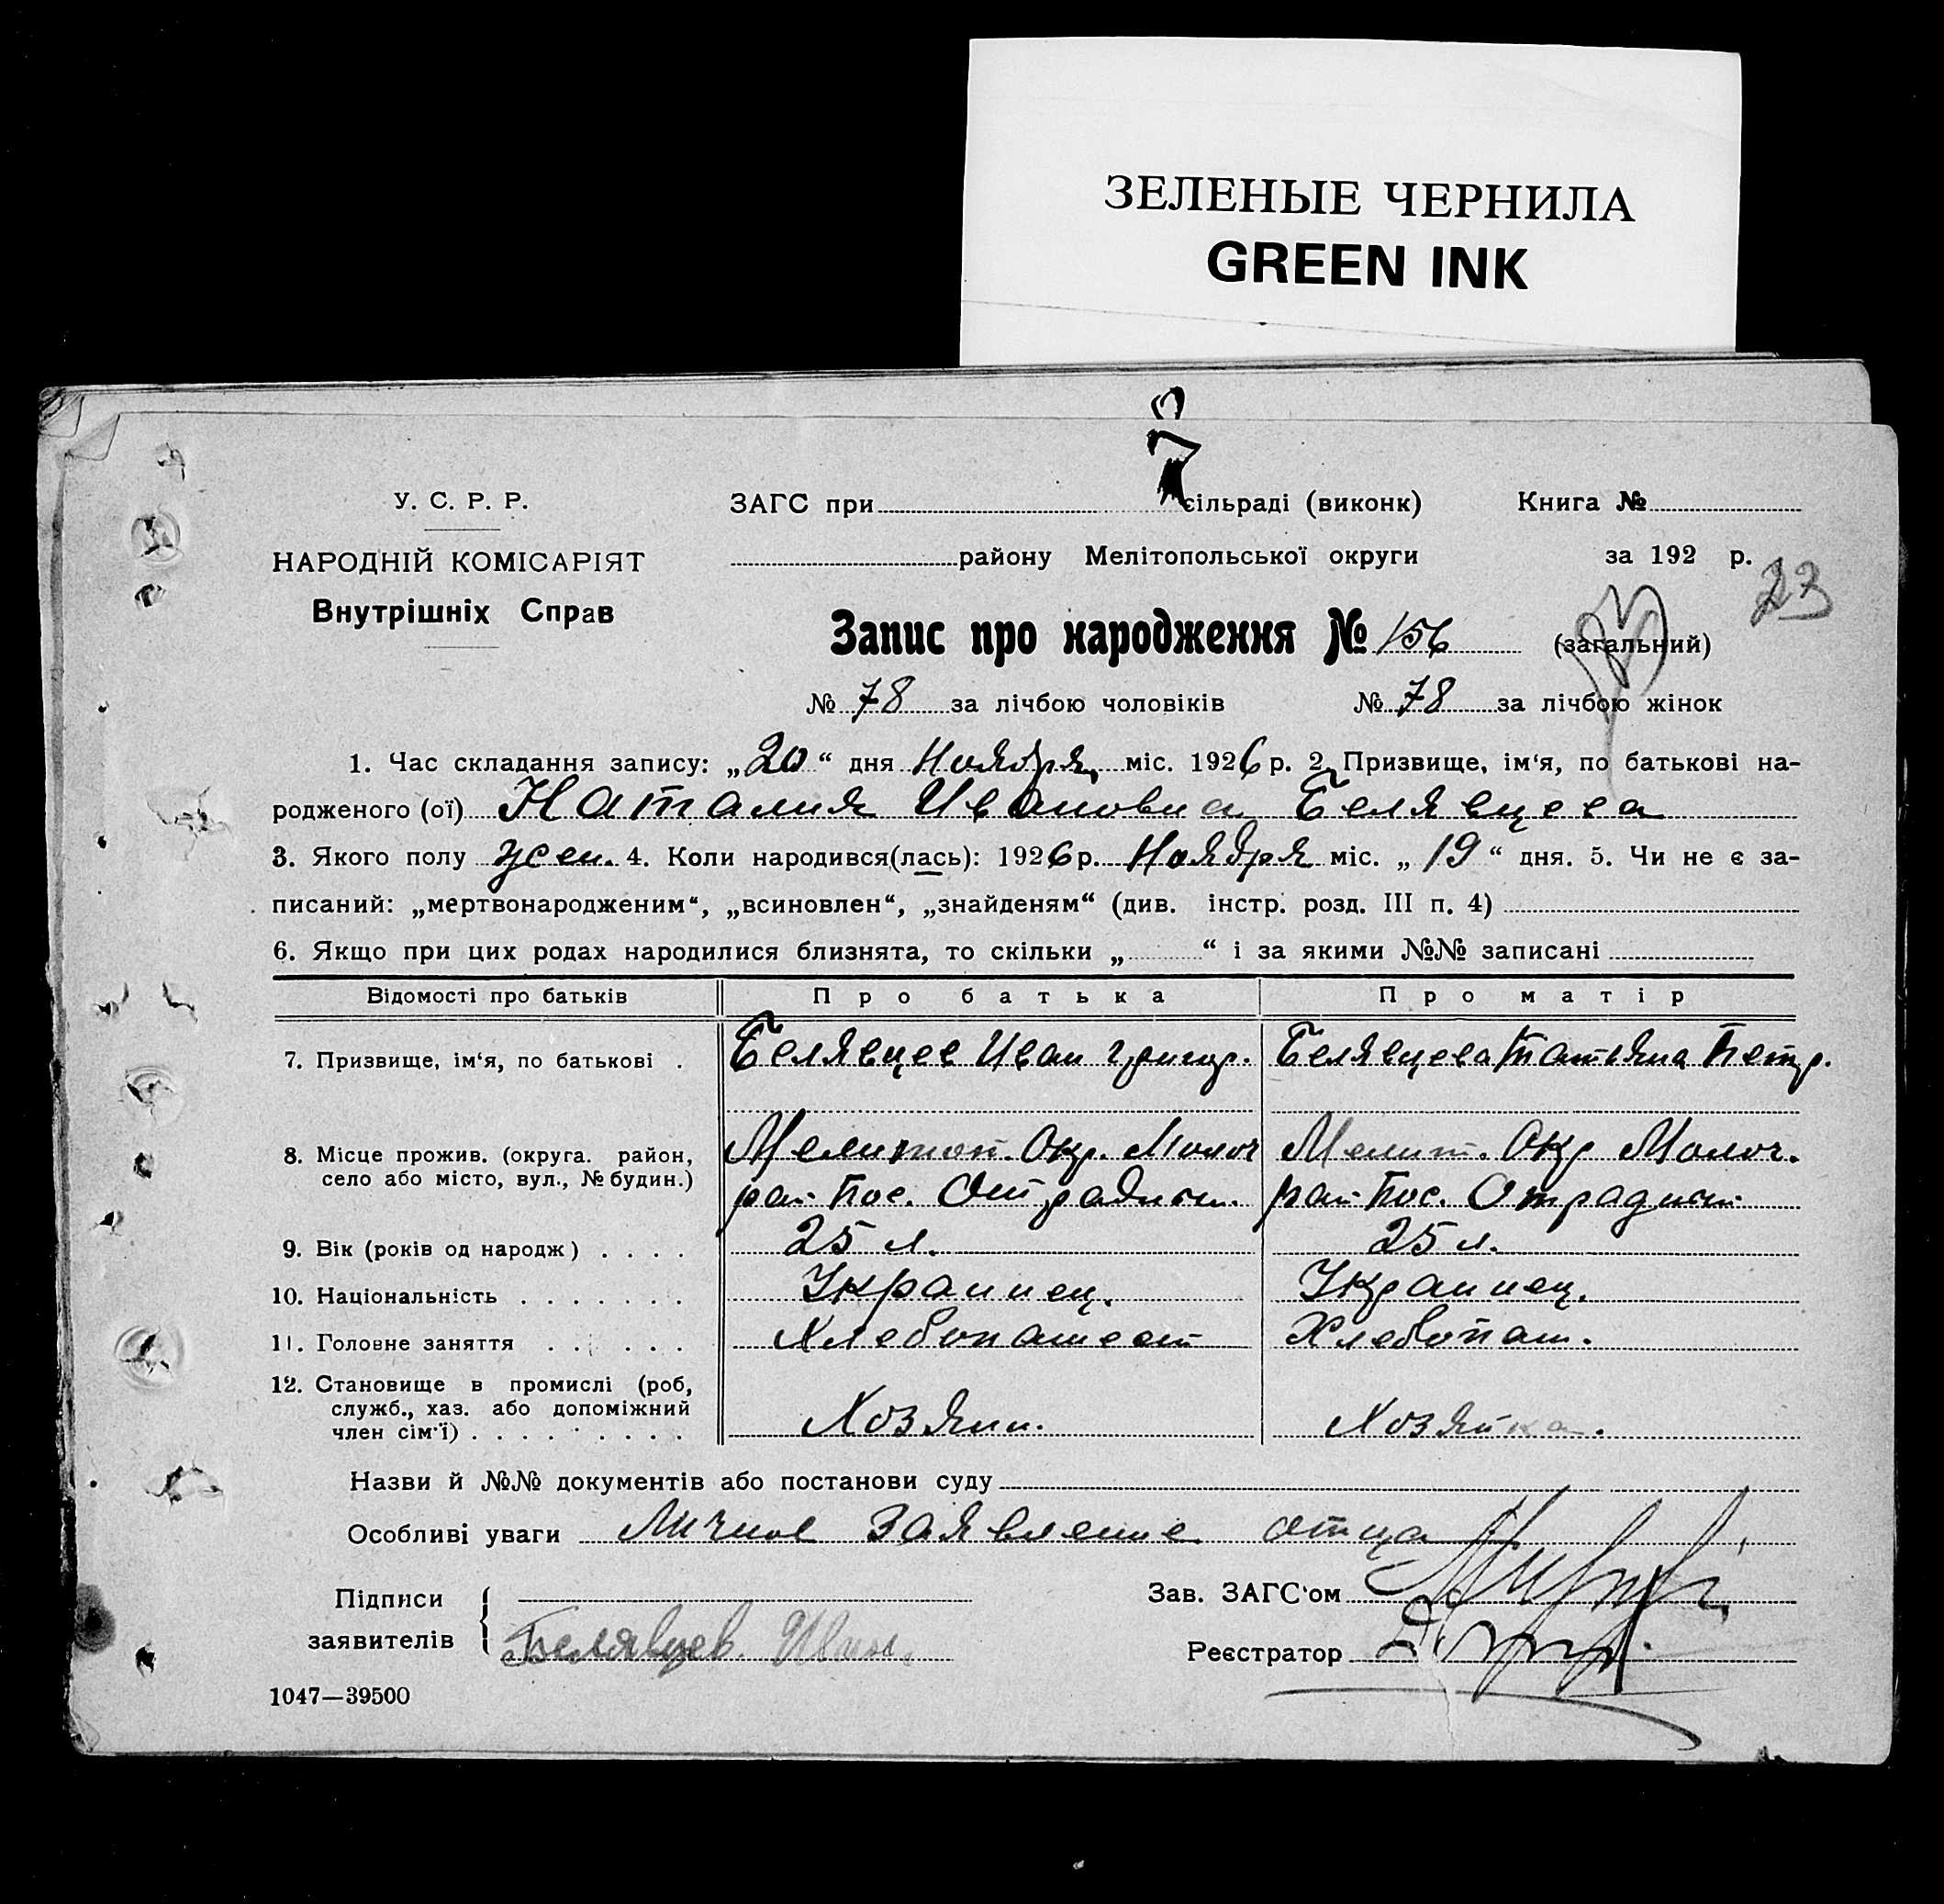 ЗЕЛЕНЫЕ ЧЕРНИЛА
GREEN INK
У. С. Р. Р.
НАРОДНІЙ КОМІСАРІЯТ
Внутрішніх Справ
ЗАГС при сільраді (виконк) Книга №
району Мелітопольської округи за 192 р.
23
Запис про народження № 156 (загальний)
№ 78 за лічбою чоловіків № 78 за лічбою жінок
1. Час складання запису: „20“ дня Ноября міс. 1926 р. 2. Призвище, ім‘я, по батькові на-
родженого (ої) Наталия Ивановна Белявцева
3. Якого полу жен. 4. Коли народився(лась): 1926 р. Ноября міс. „19“ дня. 5. Чи не є за-
писаний: „мертвонародженим“, „всиновлен“, „знайденям“ (див. інстр. розд. III п. 4)
6. Якщо при цих родах народилися близнята, то скільки „ “ і за якими №№ записані
Відомості про батьків Про батька Про матір
7. Призвище, ім‘я, по батькові . Белявцев Иван Григор. Белявцева Татьяна Петр.
8. Місце прожив. (округа. район, село або місто, вул., № будин.)
Мелитоп. Окр. Молоч Мелит. Окр Молоч.
рай. Пос. Отрадн рай Пос. Отрадн
9. Вік (років од народж) . . . . 25 л. 25 л.
10. Національність . . . . . . . Украинец. Украинец.
11. Головне заняття . . . . . . Хлебопашест Хлебопаш.
12. Становище в промислі (роб,
служб., хаз. або допоміжний
член сім‘ї) . . . . . . . . . Хозяин. Хозяйка.
Назви й №№ документів або постанови суду
Особливі уваги Личное заявление отца
Підписи
заявителів Белявцев. Иван.
Зав. ЗАГС‘ом
Реєстратор
1047—39500